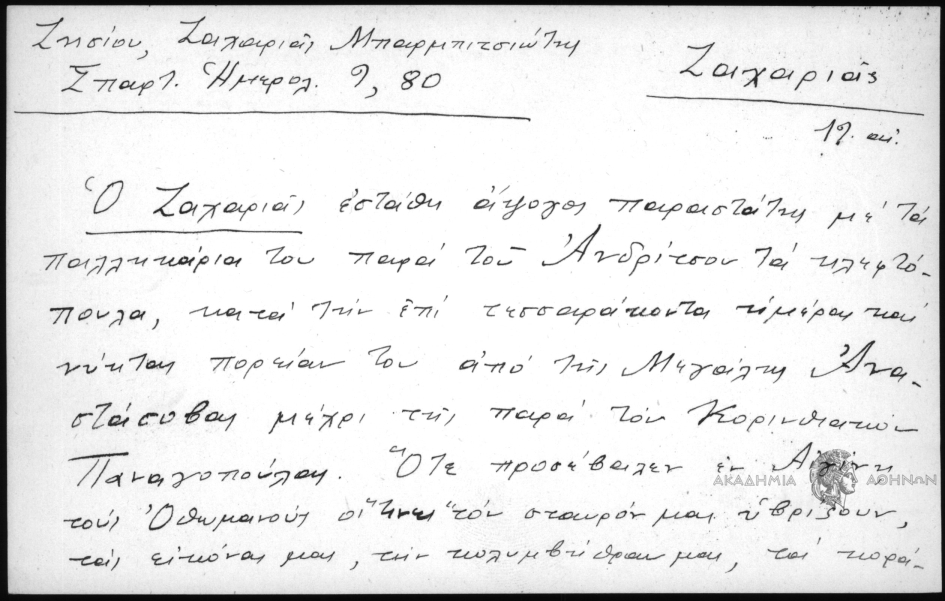 Ζησίου, Ζαχαριᾶς Μπαρμπιτσιώτης
Σπαρτ. Ἡμερολ. 9, 80
Ζαχαριᾶς
19. αἰ.
Ὁ Ζαχαριᾶς ἐστάθη ἄψογος παραστάτης μὲ τὰ
παλληκάρια του παρὰ τοῦ Ἀνδρίτσου τὰ κλεφτό-
πουλα, κατὰ τὴν ἐπὶ τεσσαράκοντα ἡμέρας καὶ
νύκτας πορείαν του ἀπὸ τῆς Μεγάλης Ἀνα-
στάσοβας μέχρι τῆς παρὰ τὸν Κορινθιακὸν
Παναγοπούλας. Ὅτε προσέβαλεν ἐν Αἰγίνῃ
ΑΚΑΔΗΜΙΑ ΑΘΗΝΩΝ
τοὺς Ὀθωμανοὺς οἵτινες τὸν σταυρόν μας ὑβρίζουν,
τὰς εἰκόνας μας, τὴν κολυμβήθραν μας, τὰ κορά-